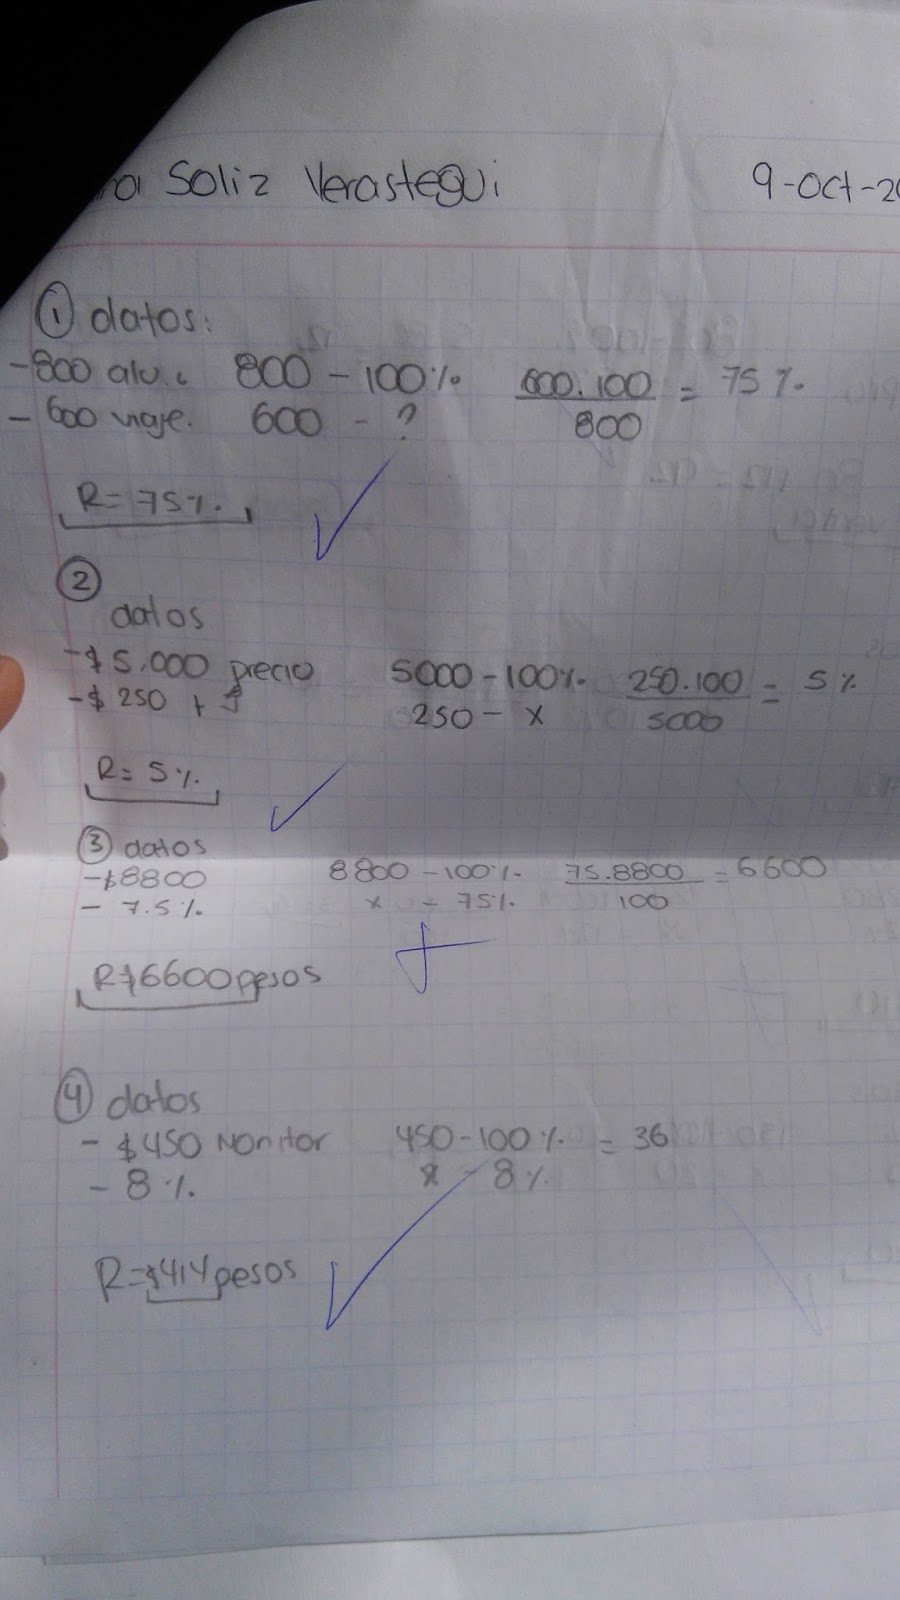 Soliz Verastegui 9-Oct-20
① datos:
-800 alu. 800 - 100% 600.100 = 75%
800
- 600 viaje. 600 - ?
R= 75%
②
datos
-$5.000 precio 5000 - 100% 250.100 = 5%
5000
-$ 250 + 250 - x
R= 5%
③ datos
-$8800 8800 - 100% 75.8800 = 6600
100
- 7.5% x - 75%
R=$6600 pesos
④ datos
- $450 Monitor 450 - 100% = 36
- 8% x - 8%
R=$414 pesos